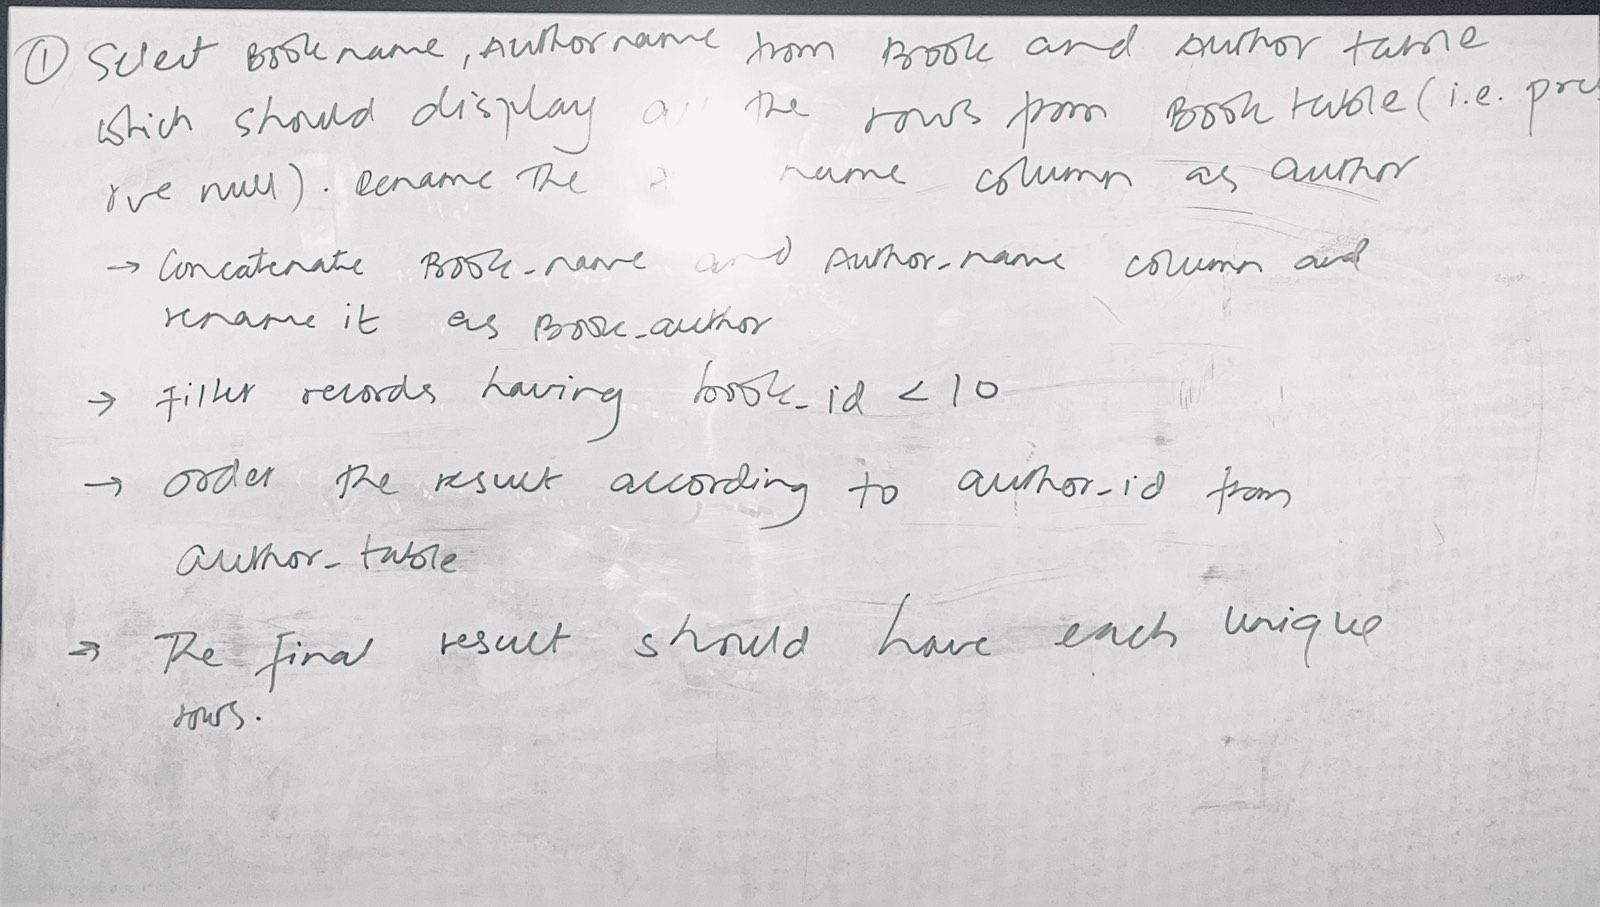 ① Select Book name, Author name from Book and Author table
which should display the rows from Book table (i.e. pres
rve null). Rename the name column as author
→ Concatenate Book_name and Author_name column and
rename it as Book_author
→ Filter records having book_id < 10
→ order the result according to author_id from
author_table
→ The final result should have each unique
rows.